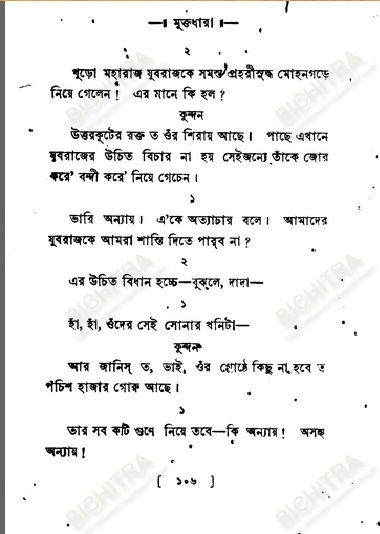 —॥ মুক্তধারা ॥—
২
খুড়ো মহারাজ যুবরাজকে সমস্ত প্রহরীসুদ্ধ মোহনগড়ে
নিয়ে গেলেন ! এর মানে কি হল ?
কুন্দন
উত্তরকূটের রক্ত ত ওঁর শিরায় আছে । পাছে এখানে
যুবরাজের উচিত বিচার না হয় সেইজন্যে তাঁকে জোর
করে’ বন্দী করে’ নিয়ে গেচেন ।
১
ভারি অন্যায় । এ’কে অত্যাচার বলে । আমাদের
যুবরাজকে আমরা শাস্তি দিতে পারব না ?
২
এর উচিত বিধান হচ্চে—বুঝলে, দাদা—
১
হাঁ, হাঁ, ওঁদের সেই সোনার খনিটা—
কুন্দন
আর জানিস্ ত, ভাই, ওঁর গোষ্ঠে কিছু না হবে ত
পঁচিশ হাজার গোরু আছে ।
১
তার সব কটি গুণে নিয়ে তবে—কি অন্যায় ! অসহ্য
অন্যায় !
[ ১০৬ ]
BICHITRA
BICHITRA
BICHITRA
BICHITRA
BICHITRA
BICHITRA